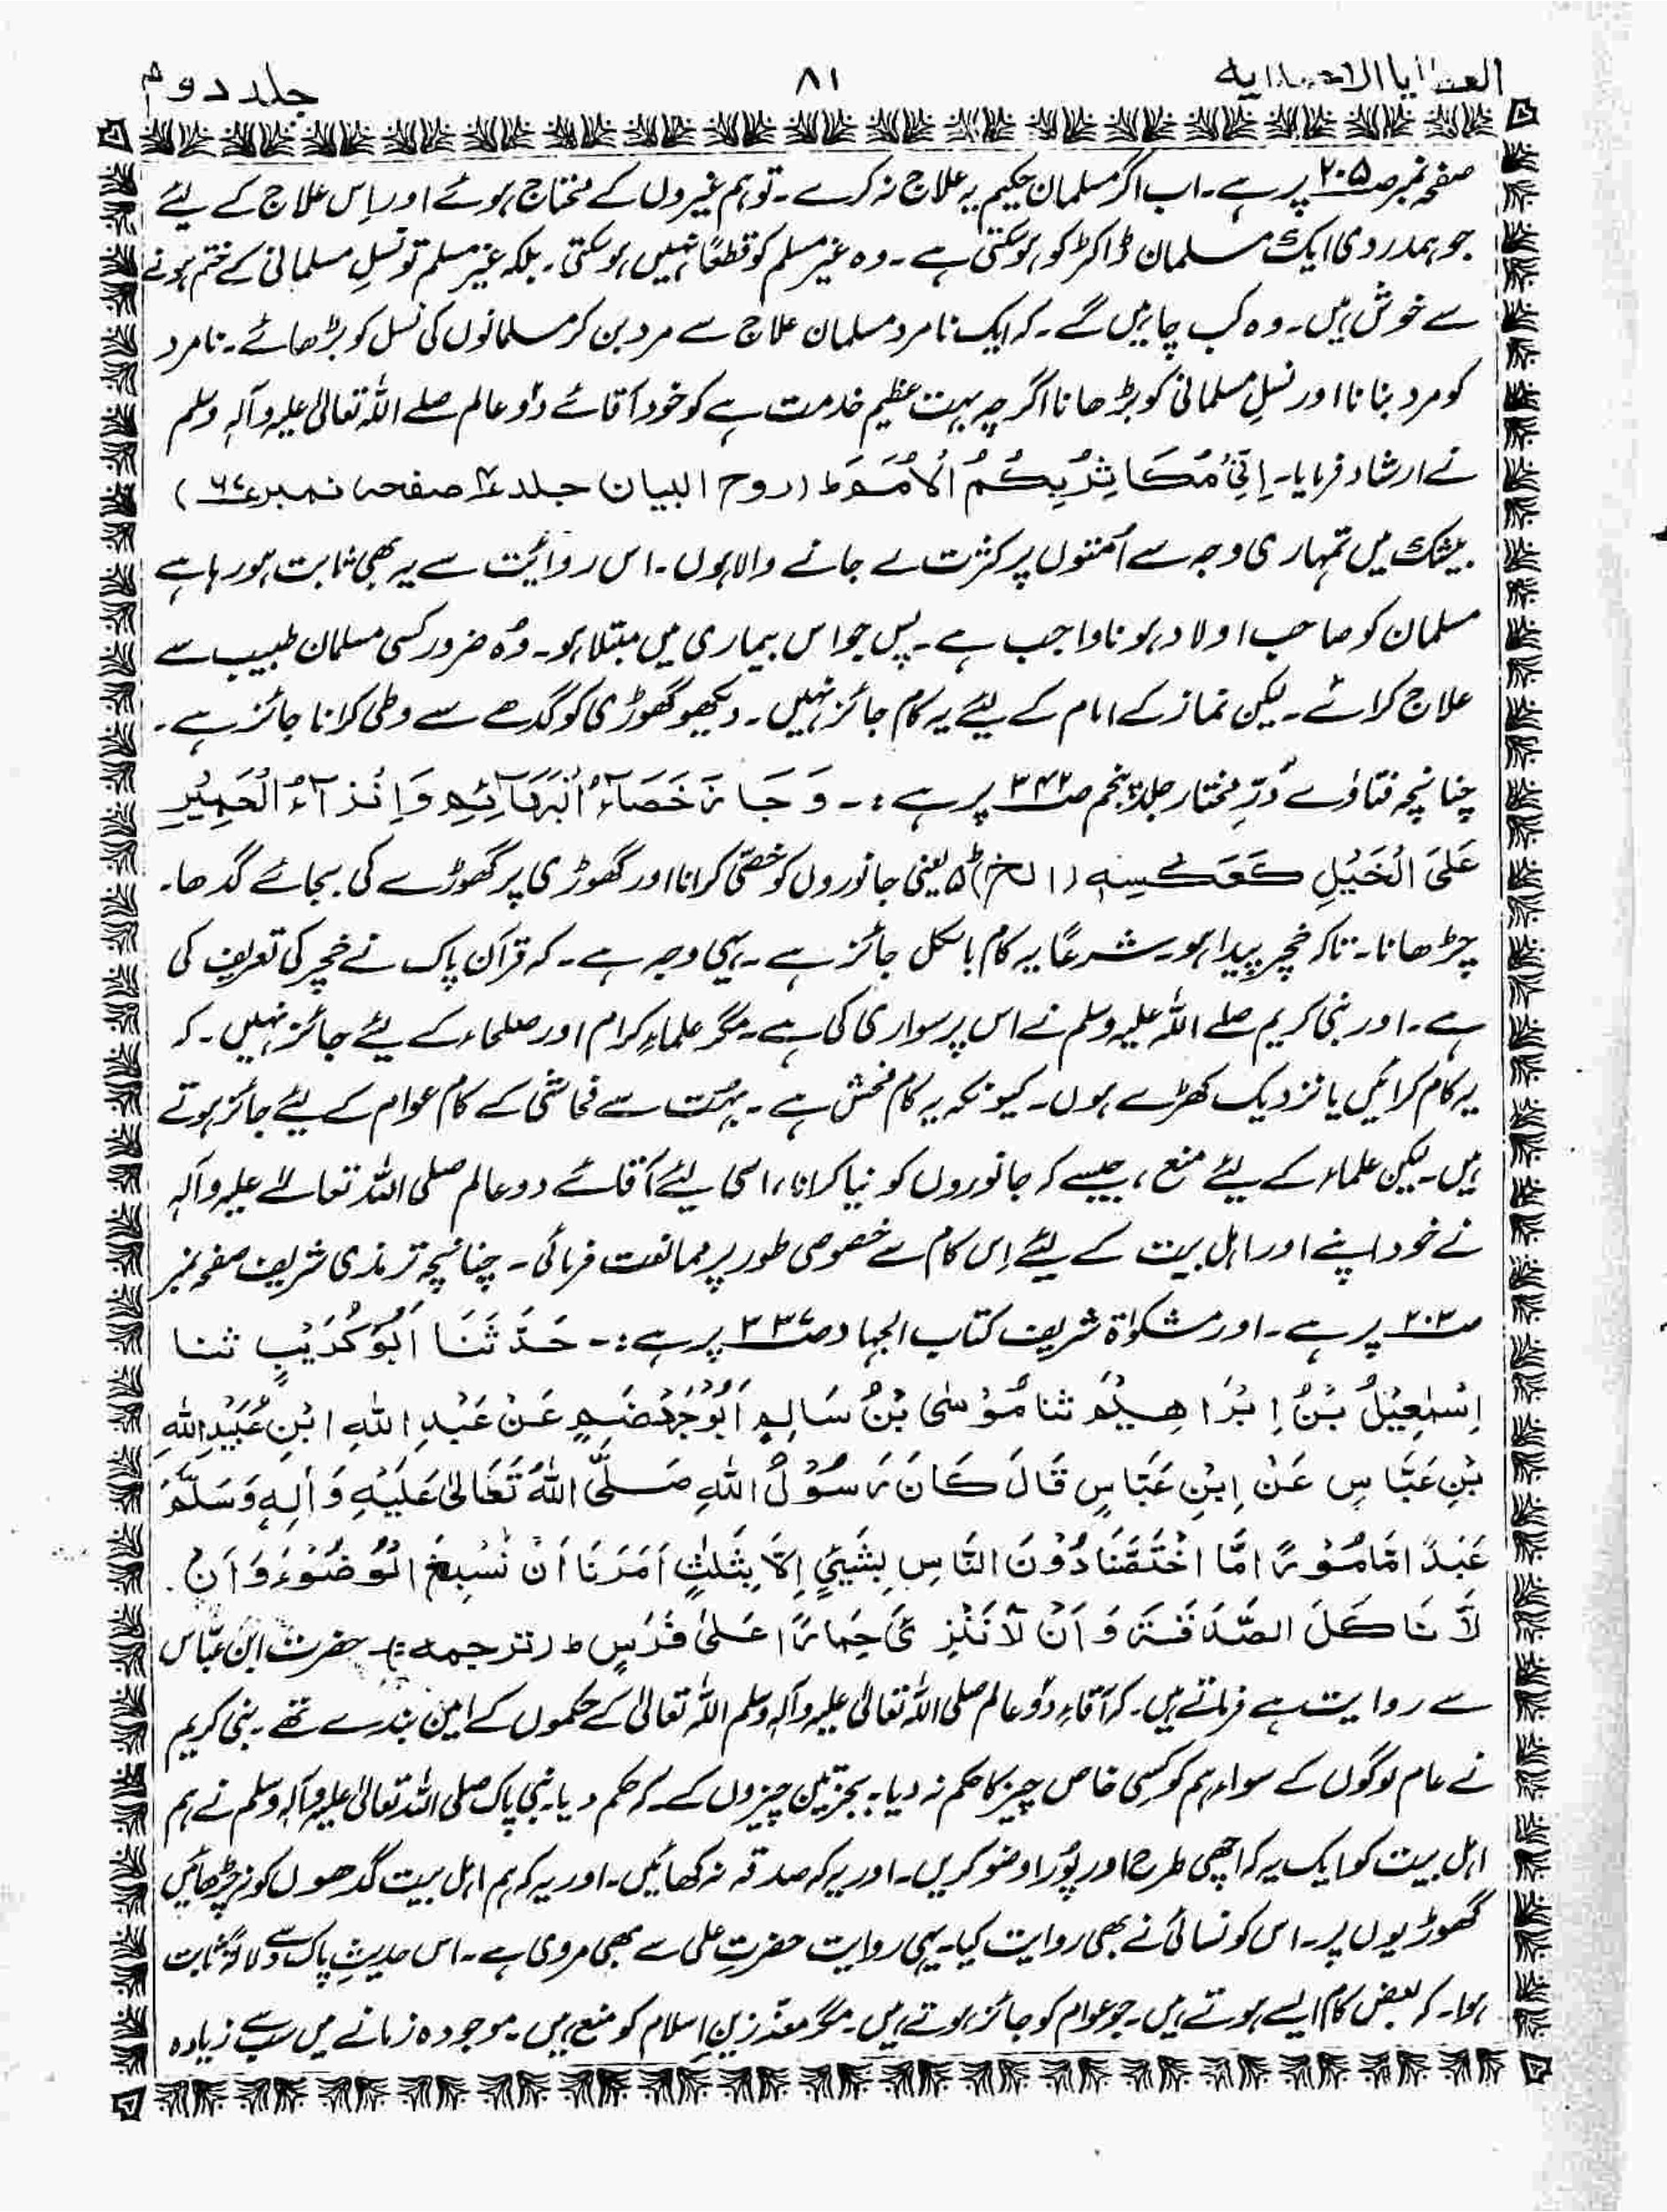 العطایا الاحمدایه ۸۱ جلد دوم
صفحہ نمبر صـ ۲۰۵ پر ہے۔ اب اگر مسلمان حکیم یہ علاج نہ کرے۔ تو ہم غیروں کے محتاج ہوئے اور اِس علاج کے لیٔے
جو ہمدردی ایک مسلمان ڈاکٹر کو ہو سکتی ہے۔ وہ غیر مسلم کو قطعًا نہیں ہو سکتی۔ بلکہ غیر مسلم تو نسلِ مسلمانی کے ختم ہونے
سے خوش ہیں۔ وہ کب چاہیں گے۔ کہ ایک نامرد مسلمان علاج سے مرد بن کر مسلمانوں کی نسل کو بڑھائے۔ نامرد
کو مرد بنانا اور نسلِ مسلمانی کو بڑھانا اگرچہ بہت عظیم خدمت ہے کو خود آقائے دؤ عالم صلے اللہ تعالیٰ علیہ وآلہٖ وسلم
نے ارشاد فرمایا۔ اِنِّیْ مُکَاثِرٌبِکُمُ الْاُمَمَ ط (روح البیان جلد ۴ صفحہ نمبر ۶۷)
بیشک میں تمہاری وجہ سے اُمتوں پر کثرت لے جانے والا ہوں۔ اس روائیت سے یہ بھی ثابت ہو رہا ہے
مسلمان کو صاحب اولاد ہونا واجب ہے۔ پس جو اس بیماری میں مبتلا ہو۔ وہُ ضرور کسی مسلمان طبیب سے
علاج کرائے۔ لیکن نماز کے امام کے لیٔے یہ کام جائز نہیں۔ دیکھو گھوڑی کو گدھے سے وطی کرانا جائز ہے۔
چنانچہ فتاوٰے دُرِّ مختار جلد پنجم صـ ۳۴۲ پر ہے :۔ وَجَازَ خَصَاءُ الْبَهَائِمِ وَاِنْزَآءُ الْحَمِیْرِ
عَلَی الْخَیْلِ کَعَکْسِہٖ (الخ) ط یعنی جانوروں کو خصّی کرانا اور گھوڑی پر گھوڑے کی بجائے گدھا۔
چڑھانا۔ تاکہ خچر پیدا ہو۔ شرعًا یہ کام بالکل جائز ہے۔ یہی وجہ ہے۔ کہ قرآن پاک نے خچر کی تعریف کی
ہے۔ اور نبی کریم صلے اللہ علیہ وسلم نے اس پر سواری کی ہے۔ مگر علماءِ کرام اور صلحاء کے لیٔے جائز نہیں۔ کہ
یہ کام کرائیں یا نزدیک کھڑے ہوں۔ کیونکہ یہ کام فحش ہے۔ بہُت سے فحاشی کے کام عوام کے لیٔے جائز ہوتے
ہیں۔ لیکن علماء کے لیٔے منع، جیسے کہ جانوروں کو نیا کرانا، اسی لیٔے آقائے دو عالم صلی اللہ تعالےٰ علیہ وآلہٖ
نے خود اپنے اور اہل بیت کے لیٔے اِس کام سے خصوصی طور پر ممانعت فرمائی۔ چنانچہ ترمذی شریف صفحہ نمبر
صـ ۲۰۳ پر ہے۔ اور مشکوٰۃ شریف کتاب الجہاد صـ ۳۳۷ پر ہے :۔ حَدَّثَنَا اَبُوْکُرَیْبٍ ثنا
اِسْمٰعِیْلُ بْنُ اِبْرَاهِیْمَ ثنا مُوْسٰی بْنُ سَالِمٍ اَبُوْجَهْضَمٍ عَنْ عَبْدِ اللهِ ابْنِ عُبَیْدِاللهِ
بْنِ عَبَّاسٍ عَنْ اِبْنِ عَبَّاسٍ قَالَ کَانَ رَسُوْلُ اللهِ صَلَّی اللهُ تَعَالیٰ عَلَیْهِ وَاٰلِهٖ وَسَلَّمَ
عَبْدًا مَّامُوْرًا مَّا اخْتَصَّنَا دُوْنَ النَّاسِ بِشَیْیٍٔ اِلَّا بِثَلٰثٍ اَمَرَنَا اَنْ نُسْبِغَ الْوُضُوْءَ وَاَنْ
لَّا نَاکُلَ الصَّدَقَۃَ وَاَنْ لَّا نُنْزِیَ حِمَارًا عَلیٰ فَرَسٍ ط (ترجمه) :۔ حضرت ابن عبّاس
سے روایت ہے فرماتے ہیں۔ کہ آقاءِ دؤ عالم صلی اللہ تعالیٰ علیہ وآلہٖ وسلم اللہ تعالیٰ کے حکموں کے امین بندے تھے۔ نبی کریم
نے عام لوگوں کے سواء ہم کو کسِی خاص چیز کا حکم نہ دیا۔ بجز تین چیزوں کے۔ کہ حکم دیا۔ نبی پاک صلی اللہ تعالیٰ علیہ وآلہٖ وسلم نے ہم
اہل بیت کو ایک یہ کہ اچھی طرح اور پوُرا وضو کریں۔ اور یہ کہ صدقہ نہ کھائیں۔ اور یہ کہ ہم اہل بیت گدھوں کو نہ چڑھائیں
گھوڑیوں پر۔ اس کو نسائی نے بھی روایت کیا۔ یہی روایت حضرتِ علی سے بھی مروی ہے۔ اس حدیثِ پاک سے دلالۃً ثابت
ہوا۔ کہ بعض کام ایسے ہوتے ہیں۔ جو عوام کو جائز ہوتے ہیں۔ مگر معزّزینِ اسلام کو منع ہیں۔ موجودہ زمانے میں سب سے زیادہ